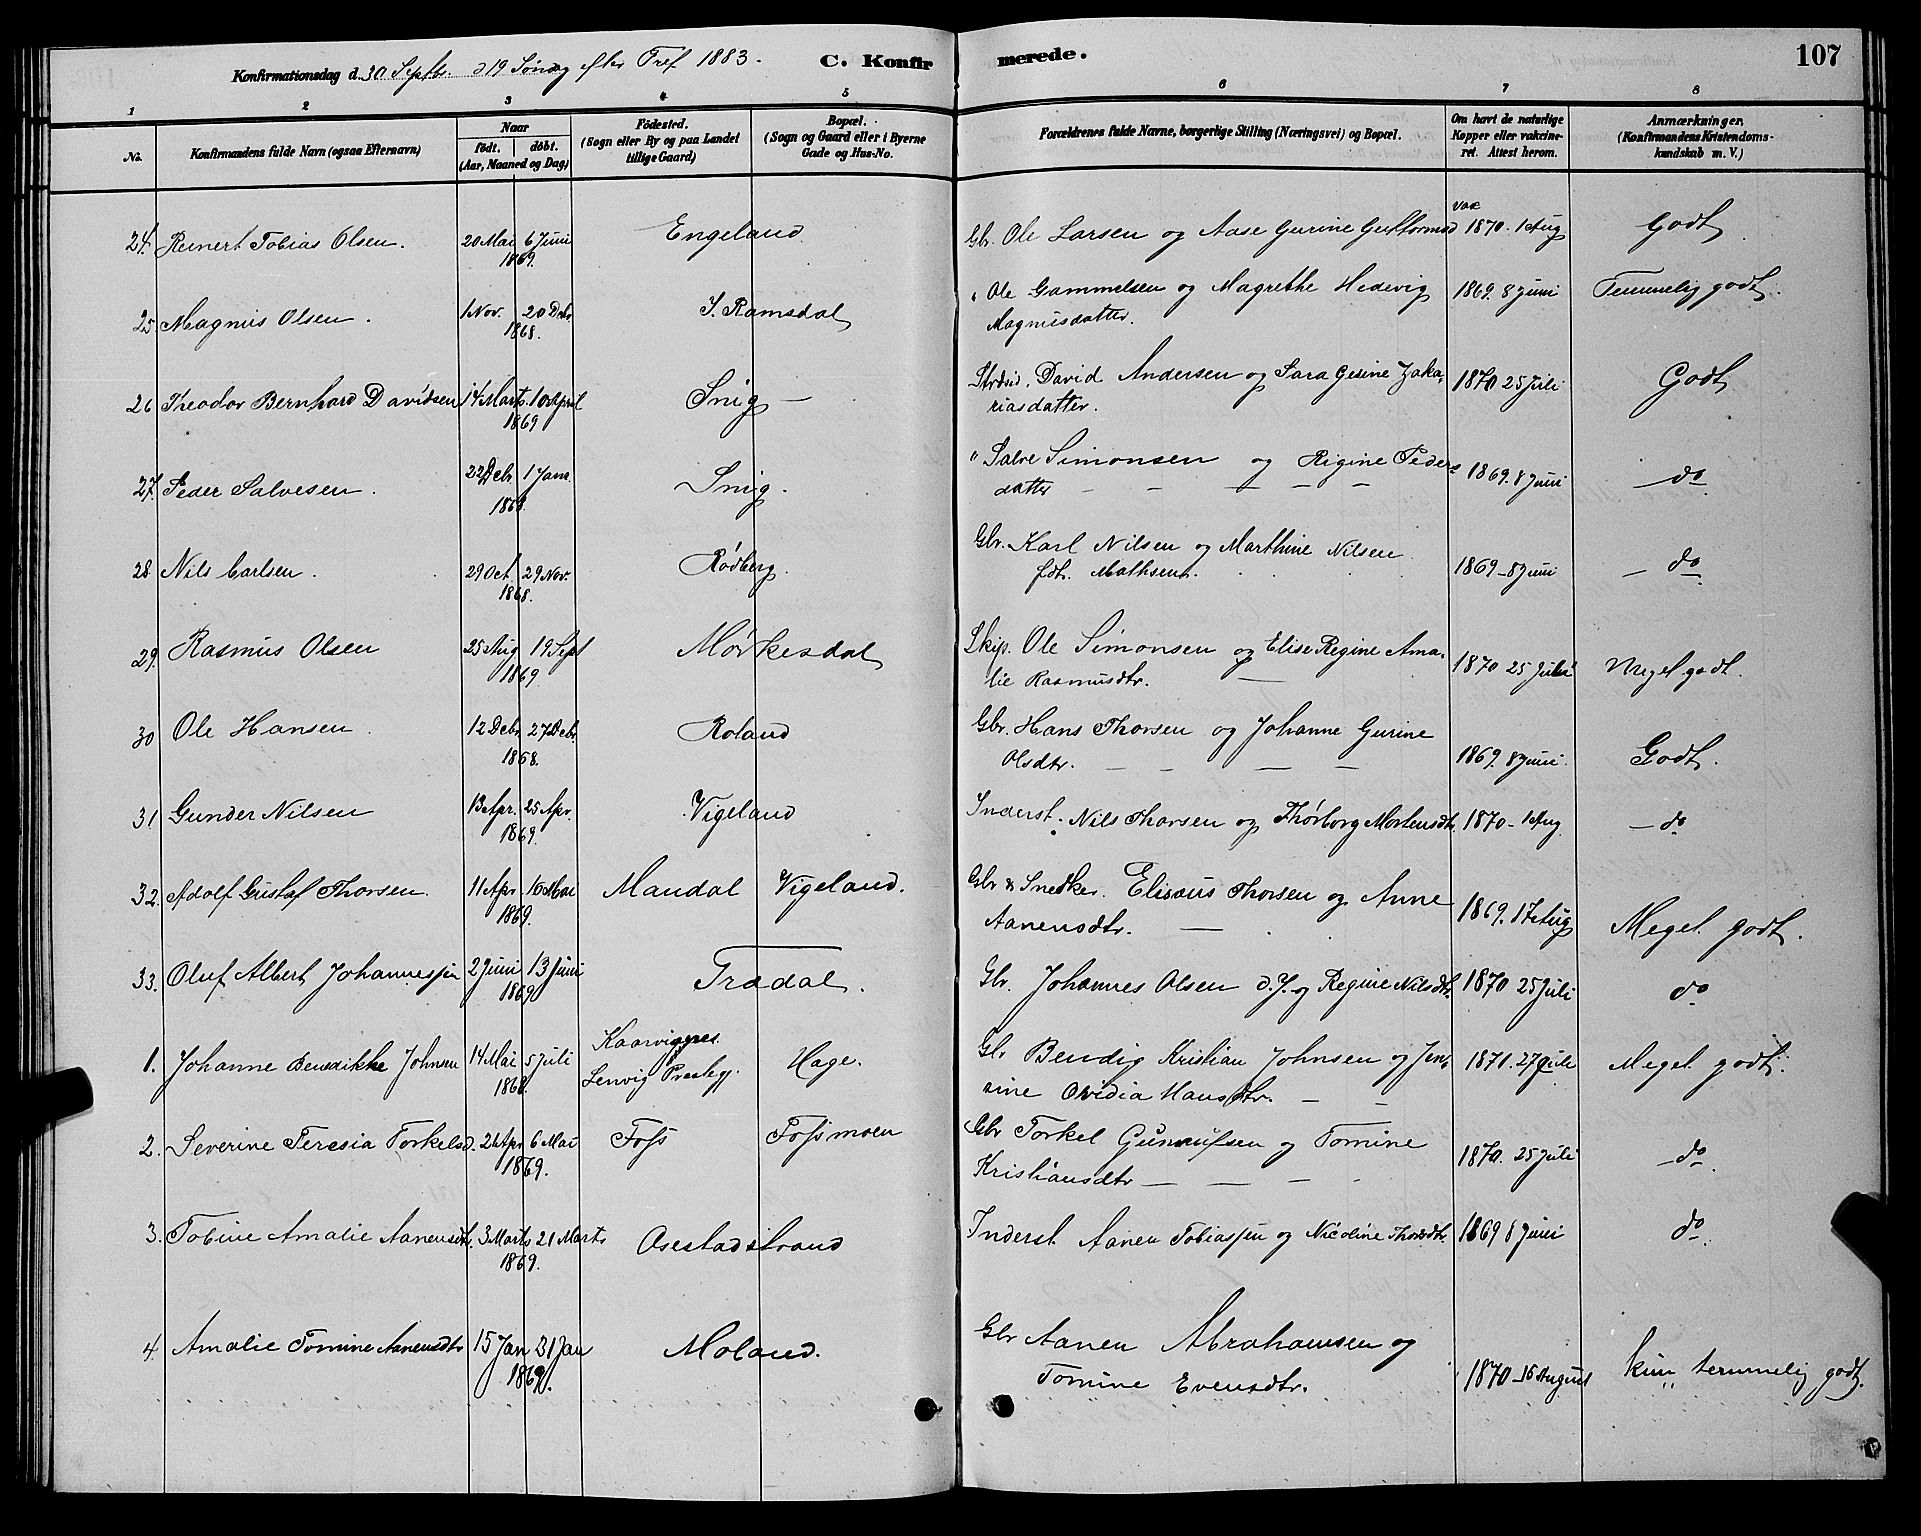 Konfirmationsdag d. 30 Septbr. d 19 Søndag efter Tref 1883. C. Konfirmerede. 107
1 2 3 4 5 6 7 8
No. Konfirmandens fulde Navn (ogsaa Efternavn) Naar födt. döbt. (Aar, Maaned og Dag) Födested. (Sogn eller By og paa Landet tillige Gaard) Bopæl. (Sogn og Gaard eller i Byerne Gade og Hus-No. Forældrenes fulde Navne, borgerlige Stilling (Næringsvei) og Bopæl. Om havt de naturlige Kopper eller vakcineret. Attest herom. Anmærkninger, (Konfirmandens Kristendomskundskab m. V.)
24. Reinert Tobias Olsen. 20 Mai 6 Juni 1869. Engeland Gbr. Ole Larsen og Aase Gurine Guttormsd vac 1870. 1 Aug Godt
25 Magnus Olsen. 1 Nov. 20 Debr 1868. I. Ramsdal " Ole Gammelsen og Magrethe Hedevig 1869. 8 Juni Temmelig godt.
Magnusdatter.
26 Theodor Bernhard Davidsen 14 Marts. 10 April 1869 Snig — David Andersen og Sara Gesine Zaka- 1870 25 Juli Godt
riasdatter.
27. Peder Salvesen. 22 Debr 1 Janr 1868. Snig. " Salve Simonsen og Rigine Peders 1869. 8 Juni — do
datter — — — — —
28 Nils Carlsen. 29 Oct 29 Nov. 1868. Rødberg. Gbr. Karl Nilsen og Marthine Nilsen 1869 – 8 Juni — do
fdt. Mathsen.
29. Rasmus Olsen 25 Aug 19 Sept 1869. Mørkesdal Skip. Ole Simonsen og Elise Regine Ama- 1870 25 Juli Meget godt.
lie Rasmusdtr. —
30 Ole Hansen. 12 Debr 27 Debr. 1868. Roland Gbr. Hans Thorsen og Johanne Gurine 1869. 8 Juni. Godt.
Olsdtr. — — — —
31 Gunder Nilsen 13 Apr. 25 Apr. 1869. Vigeland Inderst. Nils Thorsen og Thørborg Mortensdtr. 1870 – 1 Aug. — do
32. Adolf Gustaf Thorsen. 11 Apr 16 Mai 1869. Mandal Vigeland. Gbr & Snedker. Elisæus Thorsen og Anne 1869. 17 Aug Meget godt.
Aanensdtr. —
33. Oluf Albert Johannessen 2 Juni 13 Juni 1869 Tradal. Gbr. Johannes Olsen d. Y. og Regine Nilsdtr. 1870 25 Juli do
1. Johanne Benedikke Johnsen 14 Mai 5 Juli 1868. Kaarvignes Lenvig Prestg. Hage. Gbr Bendig Kristian Johnsen og Jen- 1871. 27 Juli Meget godt.
sine Ovidia Hansdtr. — —
2. Severine Teresia Torkelsd. 21 Apr 6 Mai 1869. Foss Fossmoen Gbr Torkel Gunnufsen og Tomine 1870. 25 Juli — do.
Kristiansdtr — — — —
3. Tobine Amalie Aanensdtr. 3 Marts 21 Marts 1869. Osestadstrand Inderst. Aanen Tobiassen og Nicoline Thorsdtr. 1869 8 Juni do.
4. Amalie Tomine Aanensdtr 15 Jan 31 Jan 1869. Moland. Gbr Aanen Abrahamsen og 1870 – 16 August kun temmelig godt.
Tomine Evensdtr.